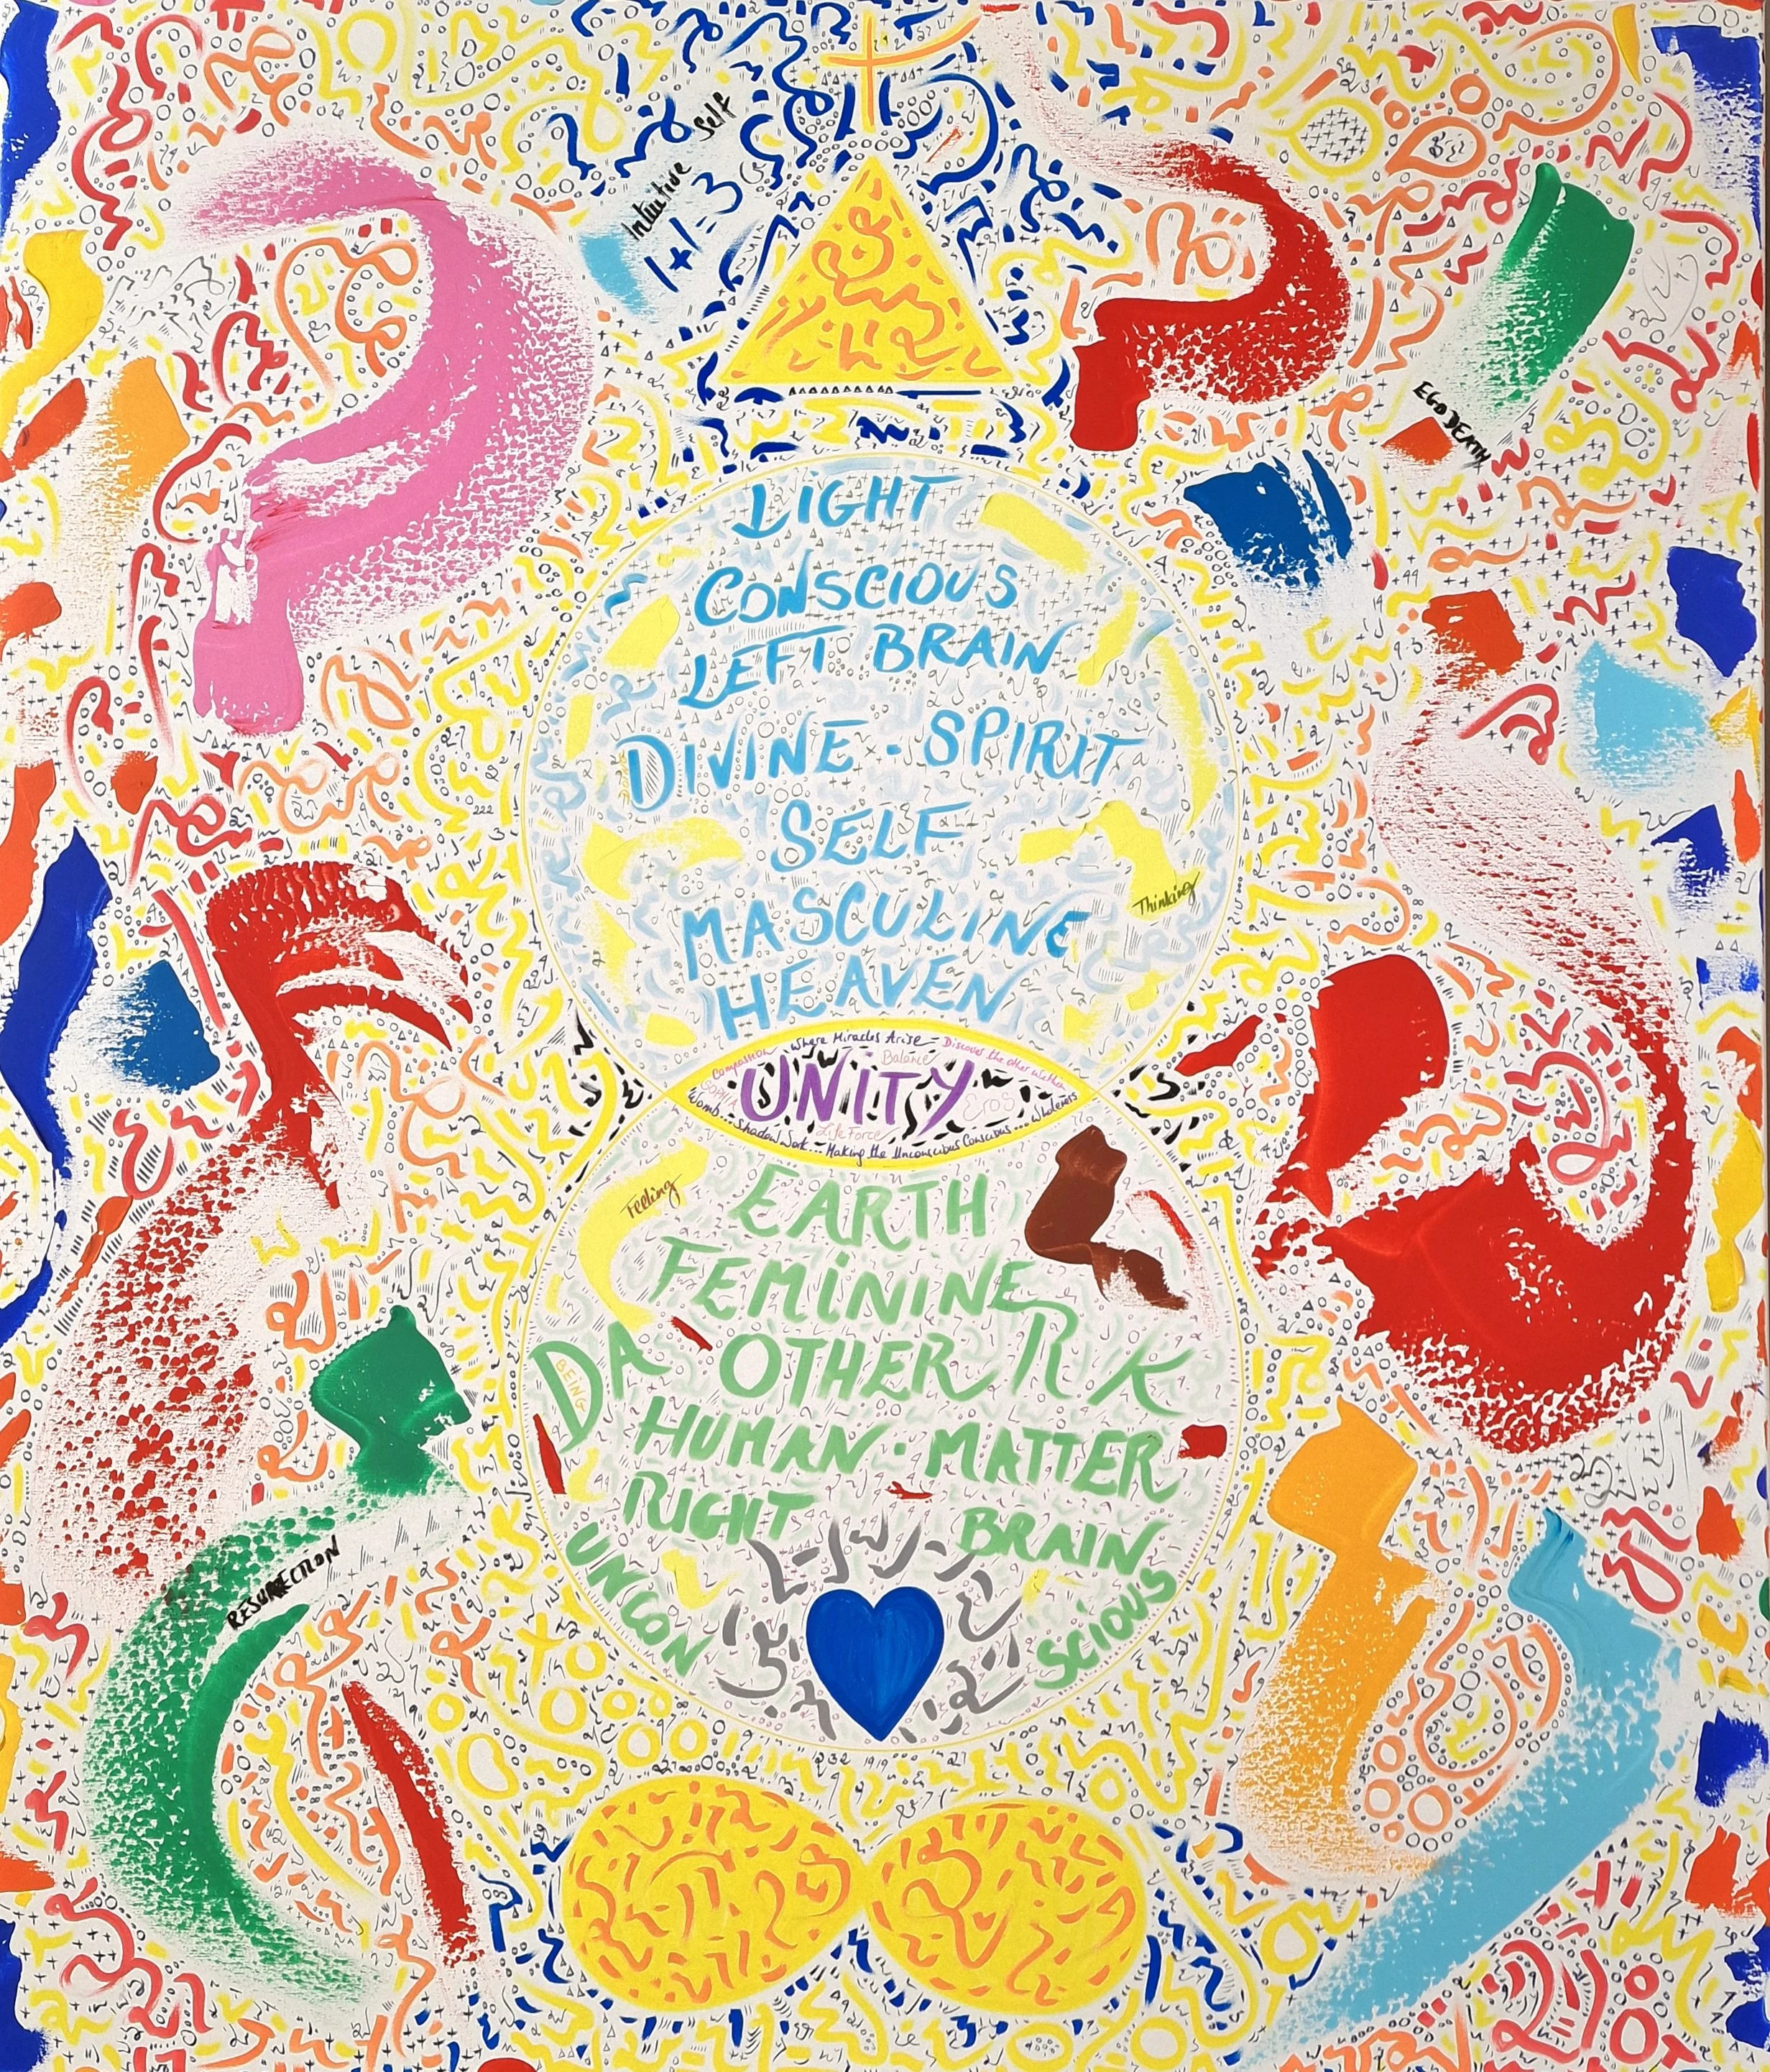 Intuitive Self
1+1=3
EGO DEATH
LIGHT
CONSCIOUS
LEFT BRAIN
DIVINE - SPIRIT
SELF
Thinking
MASCULINE
HEAVEN
Compassion - Where Miracles Arise - Discover the other within
Balance
UNITY
Eros
Life Force
Womb... Shadow Work... Making the Unconscious Conscious... Wholeness
Feeling
EARTH
FEMININE
DARK
OTHER
BEING
HUMAN - MATTER
RIGHT BRAIN
UNCONSCIOUS
RESURRECTION